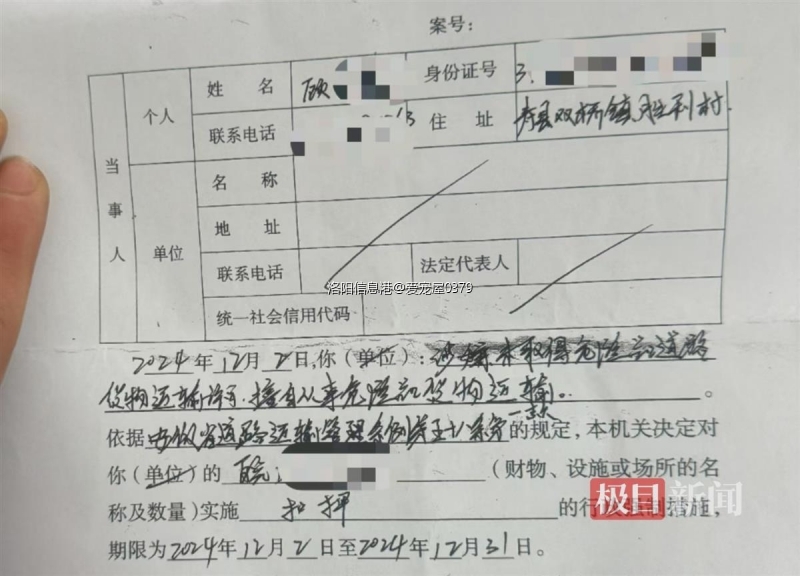 案号：
当事人
个人
姓 名 顾 身份证号 3.
联系电话 住 址 寿县双桥镇胜利村.
单位
名 称
地 址
联系电话 法定代表人
洛阳信息港@爱宠屋0379
统一社会信用代码
2024年12月2日,你（单位）：涉嫌未取得危险品道路
货物运输许可,擅自从事危险品货物运输。。
依据安徽省道路运输管理条例第五十八条第一款的规定,本机关决定对
你（单位）的 皖 （财物、设施或场所的名
称及数量）实施 扣押 的行政强制措施，
极目新闻
期限为2024年12月2日至2024年12月31日。